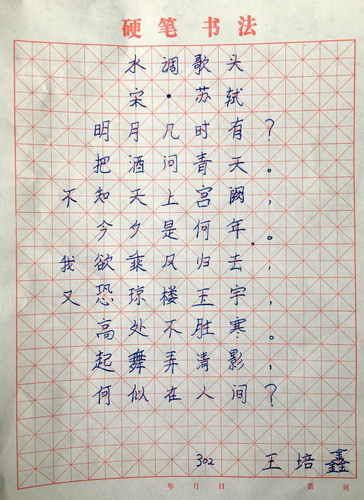 硬笔书法
水调歌头
宋·苏轼
明月几时有？
把酒问青天。
不知天上宫阙，
今夕是何年。
我欲乘风归去，
又恐琼楼玉宇，
高处不胜寒。
起舞弄清影，
何似在人间？
302 王培鑫
年 月 日 第 页